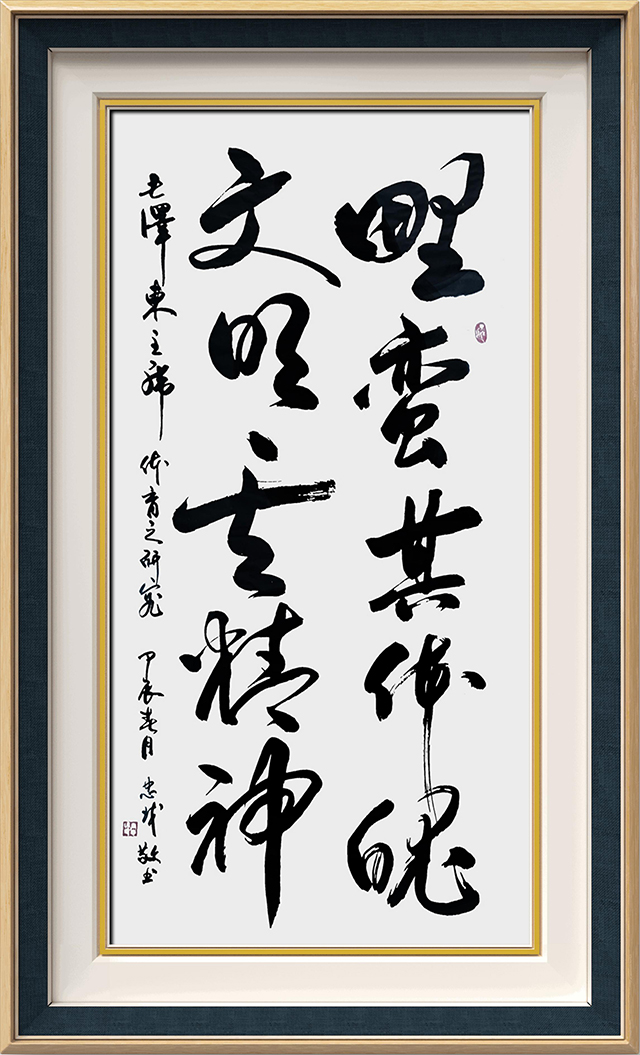 野蛮其体魄
文明其精神
毛澤東主席 体育之研究 甲辰春月 忠 敬书